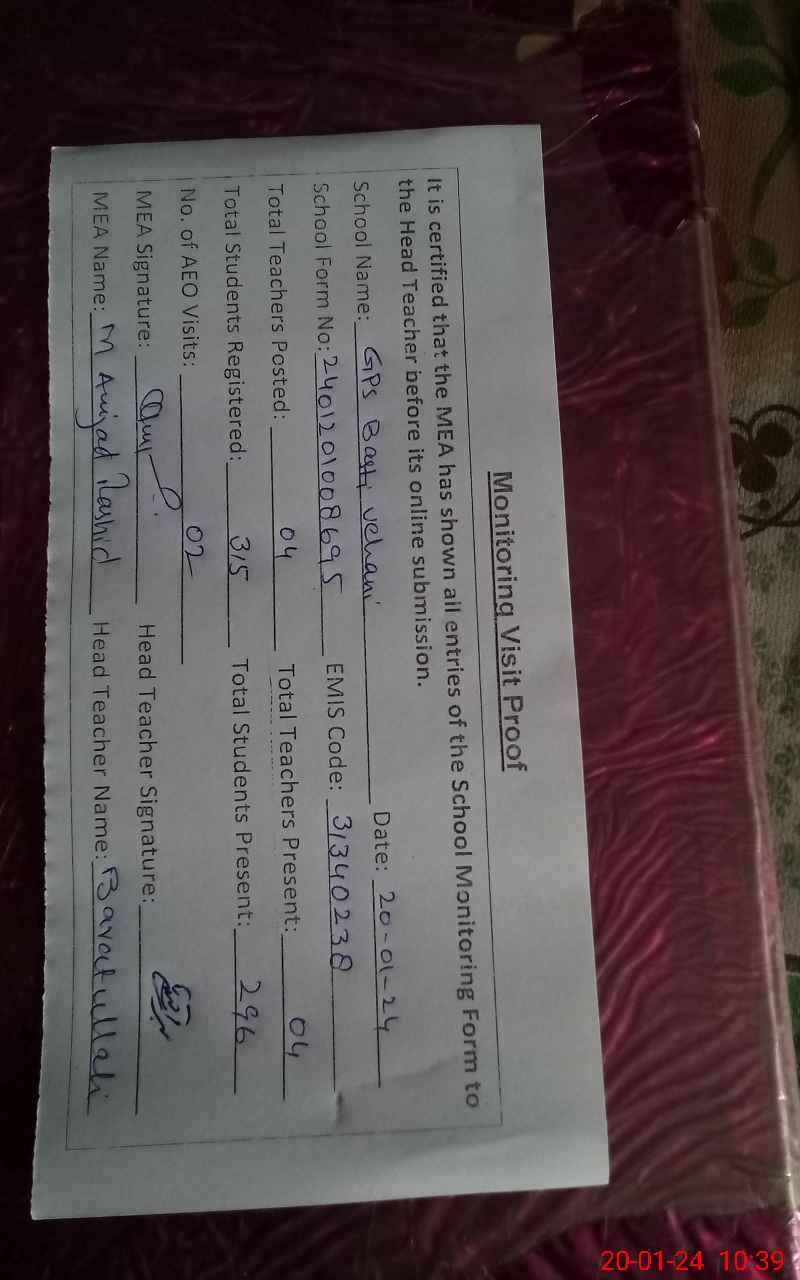 Monitoring Visit Proof
It is certified that the MEA has shown all entries of the School Monitoring Form to
the Head Teacher before its online submission.
School Name: GPS Basti vehani Date: 20-01-24
School Form No: 2401201008695 EMIS Code: 31340238
Total Teachers Posted: 04 Total Teachers Present: 04
Total Students Registered: 315 Total Students Present: 296
No. of AEO Visits: 02
MEA Signature: Head Teacher Signature:
MEA Name: M Amjad Rashid Head Teacher Name:
20-01-24 10:39